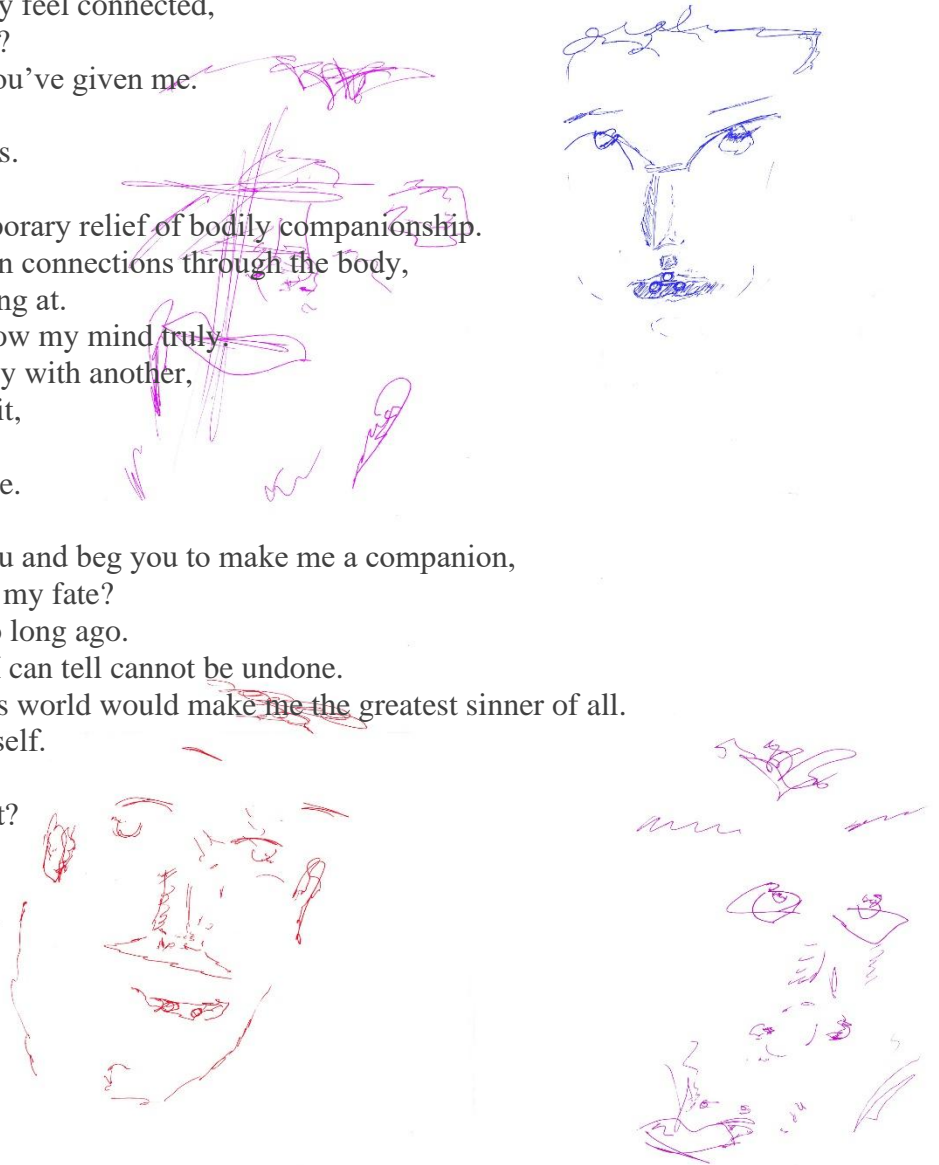 y feel connected,
?
ou’ve given me.
s.
porary relief of bodily companionship.
n connections through the body,
ng at.
ow my mind truly.
y with another,
it,
e.
u and beg you to make me a companion,
my fate?
o long ago.
I can tell cannot be undone.
s world would make me the greatest sinner of all.
self.
t?